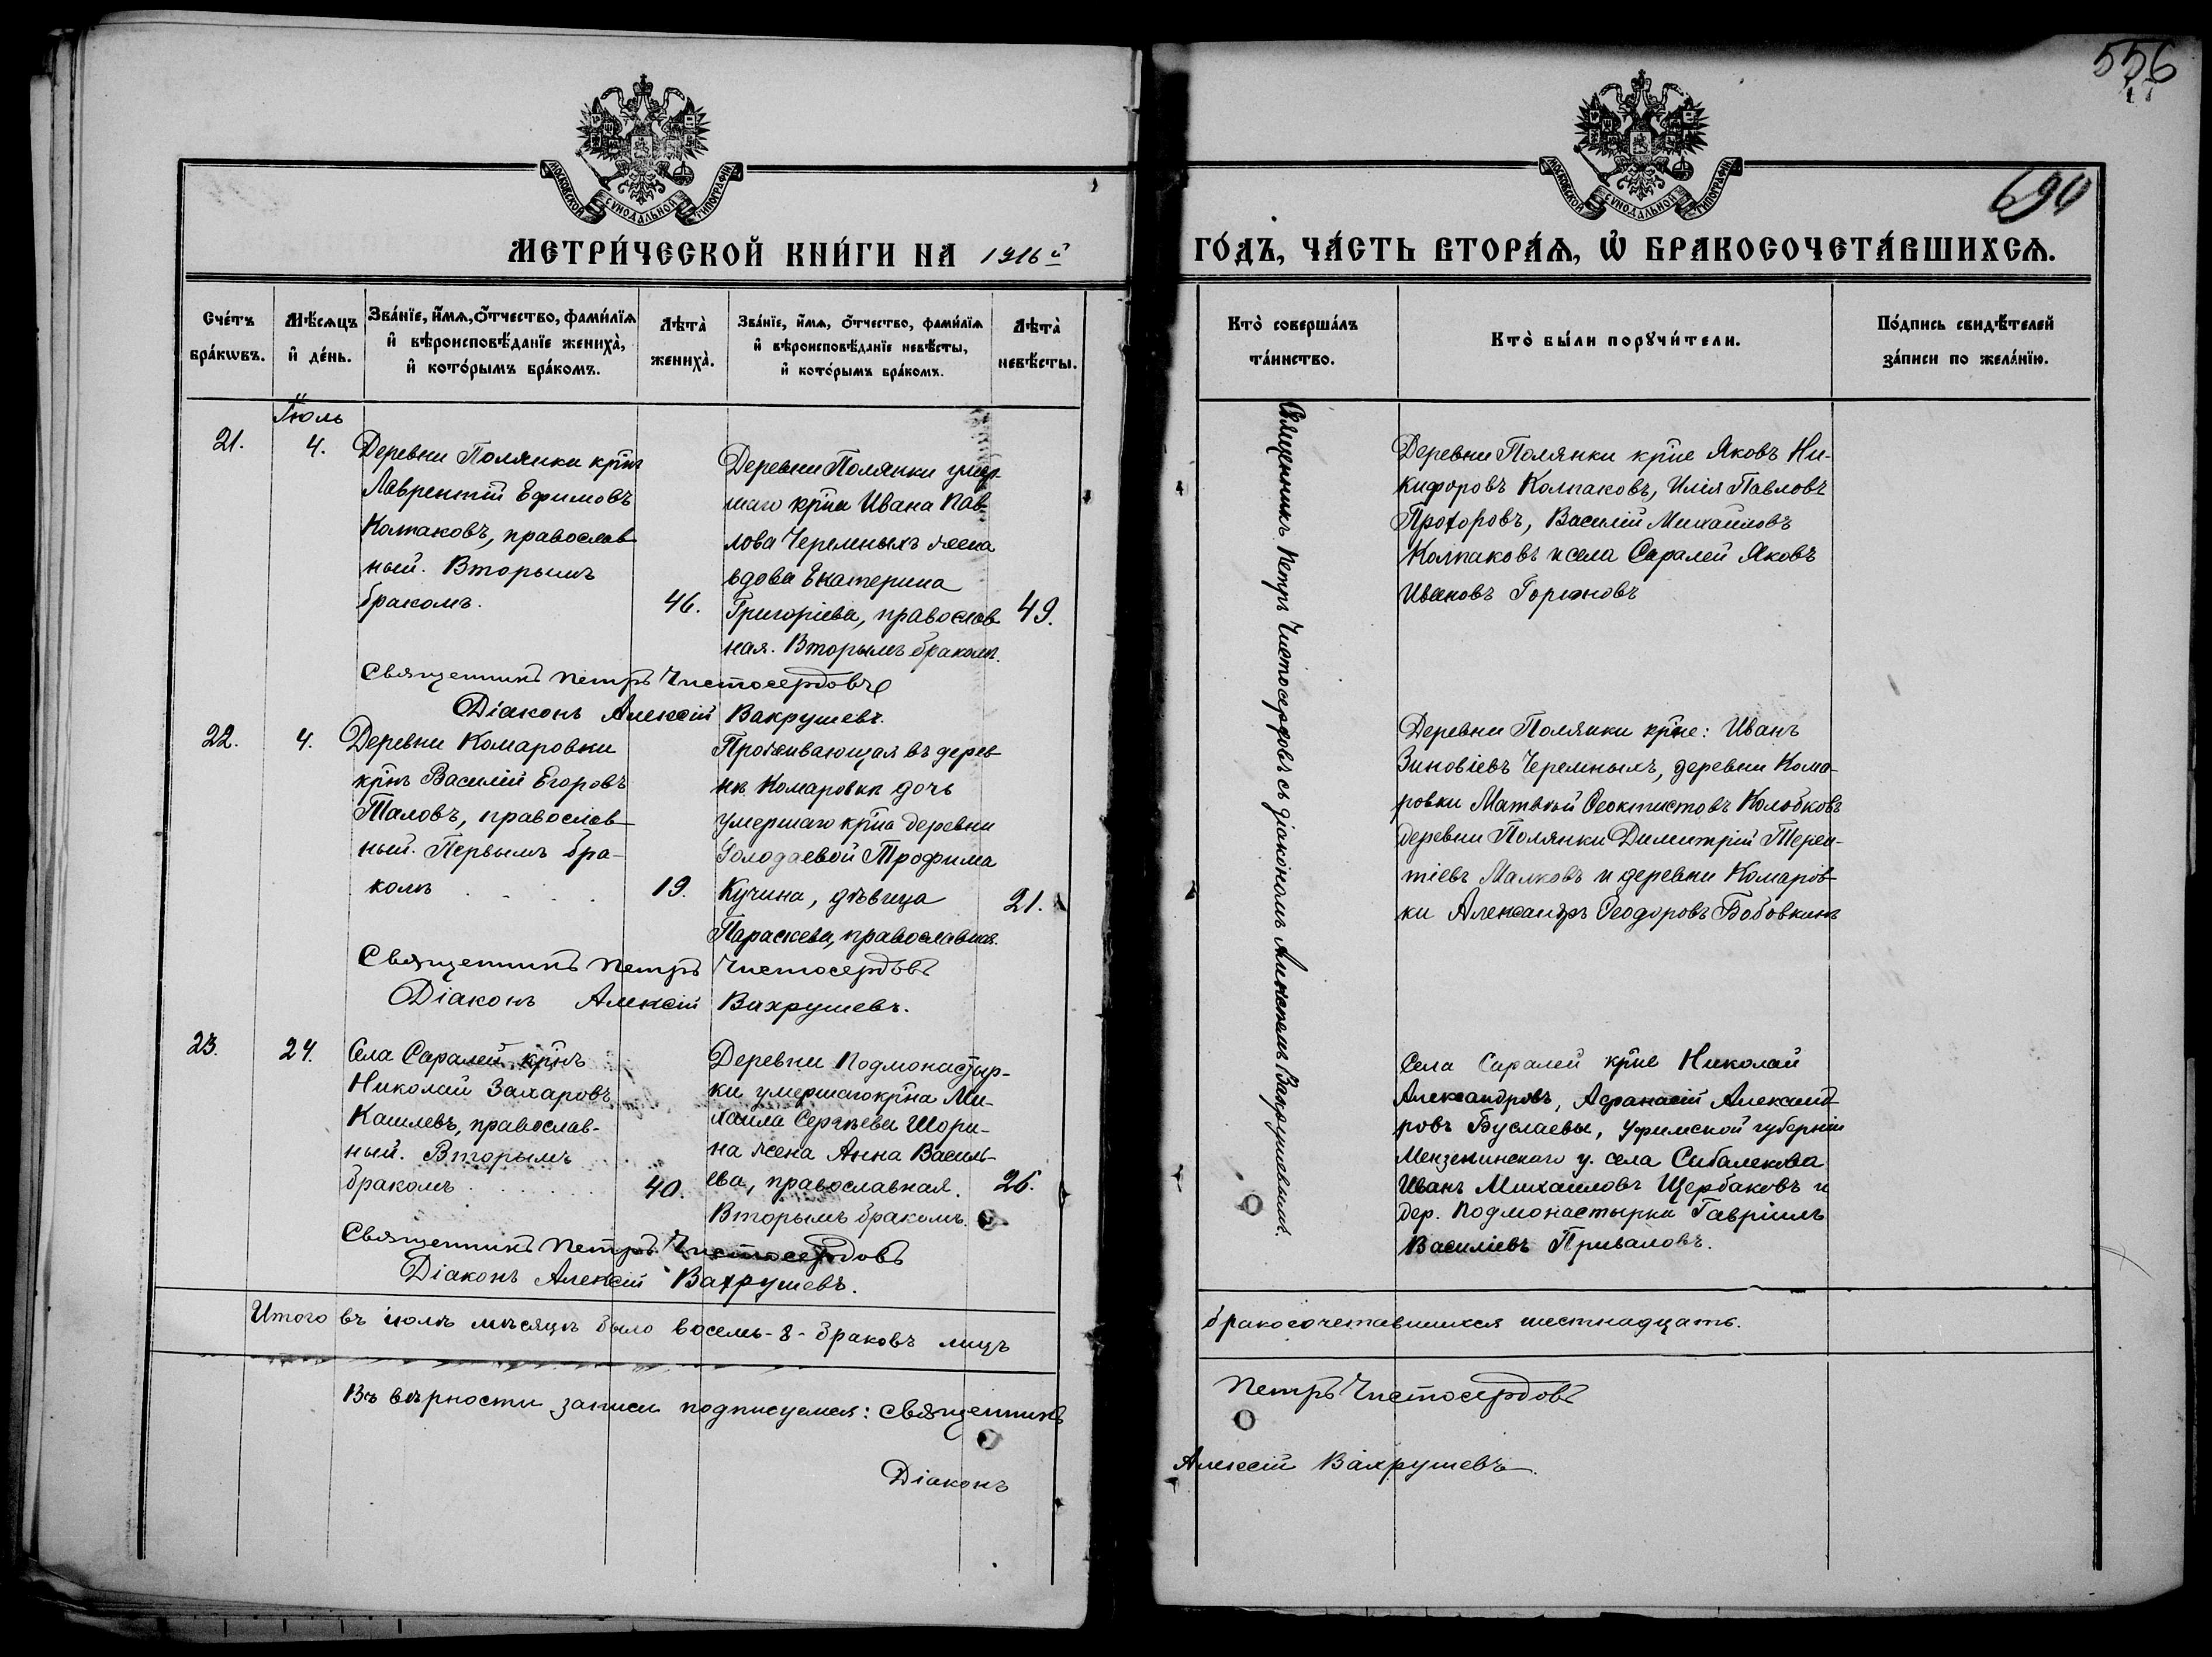 556
690
МОСКОВСКОЙ СУНОДАЛЬНОЙ ТИПОГРАФІИ
МОСКОВСКОЙ СУНОДАЛЬНОЙ ТИПОГРАФІИ
МЕТРИ́ЧЕСКОЙ КНИ́ГИ НА 1916й
ГО́ДЪ, ЧА́СТЬ ВТОРА́Ѧ, Ѡ҆ БРАКОСОЧЕТА́ВШИХСѦ.
Сче́тъ
бра́кѡвъ.
Мѣ́сѧцъ
и҆ де́нь.
Зва́нїе, и҆́мѧ, ѻ҆́тчество, фами́лїѧ
и҆ вѣроисповѣ́данїе жениха̀,
и҆ кото́рымъ бра́комъ.
Лѣта̀
жениха̀.
Зва́нїе, и҆́мѧ, ѻ҆́тчество, фами́лїѧ
и҆ вѣроисповѣ́данїе невѣ́сты,
и҆ кото́рымъ бра́комъ.
Лѣта̀
невѣ́сты.
Кто̀ соверша́лъ
та́инство.
Кто̀ бы́ли порꙋчи́тели.
По́дпись свидѣ́телей
за́писи по жела́нїю.
Іюль
21.
4.
Деревни Полянки кр̃нъ
Лаврентій Ефимовъ
Колпаковъ, православ
ный. Вторымъ
бракомъ.
46.
Деревни Полянки умер
шаго кр̃на Ивана Пав
лова Черемныхъ жена
вдова Екатерина
Григоріева, православ
ная. Вторымъ бракомъ.
49.
Священникъ Петръ Чистосердовъ
Діаконъ Алексій Вахрушевъ.
Священникъ Петръ Чистосердовъ съ діакономъ Алексѣемъ Вахрушевымъ.
Деревни Полянки кр̃не Яковъ Ни-
кифоровъ Колпаковъ, Илія Павловъ
Прохоровъ, Василій Михаиловъ
Колпаковъ и села Саралей Яковъ
Ивановъ Горшновъ
22.
4.
Деревни Комаровки
кр̃нъ Василій Егоровъ
Таловъ, православ
ный. Первымъ бра-
комъ
19.
Проживающая въ дерев
нѣ Комаровкѣ дочь
умершаго кр̃на деревни
Голодаевой Трофима
Кучина, дѣвица
Параскева, православная.
21.
Священникъ Петръ Чистосердовъ
Діаконъ Алексій Вахрушевъ.
Деревни Полянки кр̃не: Иванъ
Зиновіевъ Черемныхъ, деревни Кома-
ровки Матвѣй Ѳеоктистовъ Колобковъ
деревни Полянки Димитрій Терен-
тіевъ Малковъ и деревни Комаров
ки Александръ Ѳеодоровъ Бобовкинъ
23.
24.
Села Саралей кр̃нъ
Николай Захаровъ
Кашлевъ, православ-
ный. Вторымъ
бракомъ
40.
Деревни Подмонастыр-
ки умершаго кр̃на Ми-
хаила Сергѣева Шори-
на жена Анна Василь-
ева, православная.
Вторымъ бракомъ.
26.
Священникъ Петръ Чистосердовъ
Діаконъ Алексій Вахрушевъ.
Села Саралей кр̃не Николай
Александровъ, Афанасій Александ
ровъ Буслаевы, Уфимской губерніи
Мензелинскаго у. села Сибалекова
Иванъ Михаиловъ Щербаковъ и
дер. Подмонастырки Гавріилъ
Василіевъ Приваловъ.
Итого въ іюлѣ мѣсяцѣ было восемь-8-браковъ лицъ
бракосочетавшихся шестнадцать.
Въ вѣрности записи подписуемся: Священникъ
Петръ Чистосердовъ
Діаконъ
Алексій Вахрушевъ.